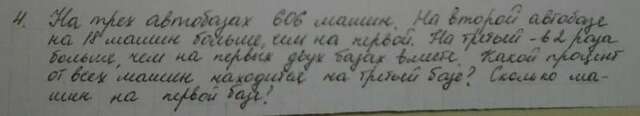 4. На трех автобазах 606 машин. На второй автобазе
на 18 машин больше, чем на первой. На третьей - в 2 раза
больше, чем на первых двух базах вместе. Какой процент
от всех машин находится на третьей базе? Сколько ма-
шин на первой базе?